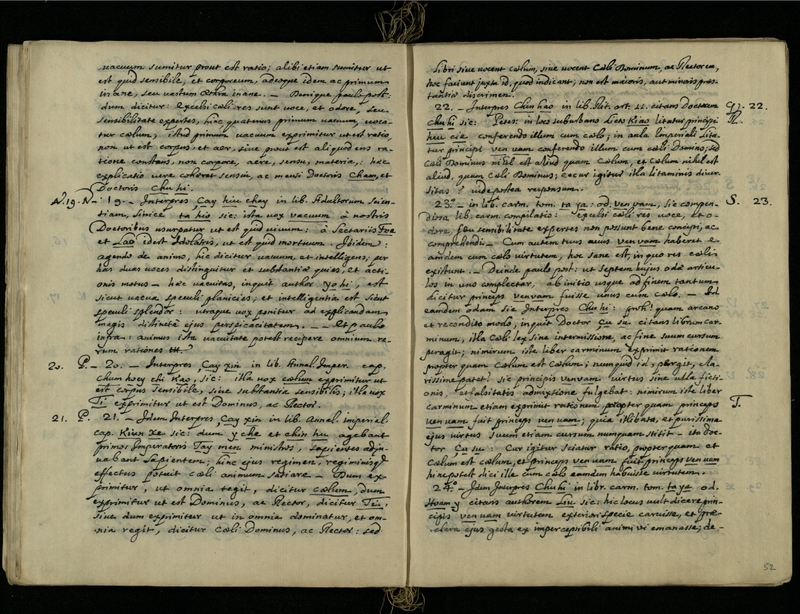 vacuum sumitur prout est ratio; alibi etiam sumitur ut
est quid sensibile, et corporeum, adeoque idem ac primum
inane, seu vastum inane. — Denique paulò post
dum dicitur: excelsi cœli res sunt voce, et odore, seu
sensibilitate expertes, hîc quatenus primum vacuum, voca-
tur cœlum, istud primum vacuum exprimitur ut est ratio,
non ut est corpus et aer, sive prout est aliquod ens ra-
tione constans, non corpore, aëre, sensu, materia, : hæc
explicatio vere cohæret sensui, ac menti Doctoris Cham, et
Doctoris Chu hi.
N. 19. — 19. — Interpres Cay hiu chay in lib. Adultorum Scien-
tiam, sinicè ta hio sic: ista vox vacuum à nostris
Doctoribus usurpatur ut est quid vivum: à Sectariis Foe
et Lao idest Idolatris, ut est quid mortuum. Ibidem:
agendo de animo, hîc dicitur vacuum, et intelligens, per
has duas voces distinguitur et substantiæ quies, et acti-
onis motus — hæc vacuitas, inquit author yo hi, est
sicut vacua speculi planicies, et intelligentia est sicut
speculi splendor: utraque vox ponitur ad explicandam
magis distinctè ejus perspicacitatem. — Et paulo
infra: animus ista vacuitate potest recipere omnium re-
rum rationes
20. P. — 20. — Interpres Cay xin in lib. Annal. Imper. cap.
Chum hoey chi kao, sic: illa vox cœlum exprimitur ut
est corpus sensibile, sive substantia sensibilis; illa vox
Ti exprimitur ut est Dominus, ac Rector.
21. P. 21. — Idem Interpres Cay xin in lib. Annal. imperial.
cap. Kiun xe sic: dum y che et chin hu agebant
primos Imperatoris Tay men ministros, sapientes adju-
vabant sapientem; hinc ejus regimen, regiminisque
effectus potuit cœli animum satiare. — Dum ex-
primitur, ut omnia tegit, dicitur cœlum, dum
exprimitur ut est Dominus, ac Rector, dicitur Ti,
sive dum exprimitur ut in omnia dominatur, et om-
nia regit, dicitur Cœli Dominus, ac Rector: sed
libri sive vocent cœlum, sive vocent Cœli Dominum, ac Rectorem,
hoc faciunt juxta id, quod indicant; non est majoris, aut minoris præs-
tantiæ discrimen.
22. — Interpres Chin hao in lib. Rit. art. 11. citans Doctorem
Chu hi sic: Petes: in loco suburbano Lieos Kiao litatur principi
heu cie conferendo illum cum cœlo; in aula Imperiali lita-
tur principi ven vam conferendo illum cum cœli Domino, sed
Cœli Dominus nihil est aliud quam Cœlum, et Cœlum nihil est
aliud, quam Cœli Dominus; ecur igitur illa litaminis diver-
sitas? vide postea responsum.
Q. 22.
R.
23.º — in lib. carm. tom. ta ya. od. ven vam, sic compen-
diosa lib. carm. compilatio: excelsi cœli res voce, et o-
dore, seu sensibilitate expertes non possunt bene concipi, ac
comprehendi. — Cum autem tuus avus ven vam haberet e-
amdem cum cœlo virtutem, hoc sane est, in quo res cœlis
existunt. — Deinde paulo post: ut septem hujus odæ articu-
los in unum complectar, ab initio usque ad finem tantum
dicitur princeps ven vam fuisse unus cum cœlo. — Ad
eamdem odam sic Interpres Chu hi: quam arcano
et recondito modo, inquit Doctor Cu su citans librum car-
minum, illa Cœli lex sine intermissione, ac fine suum cursum
peragit; nimirum iste liber carminum exprimit rationem
propter quam Cœlum est cœlum; numquid id, pergit, cla-
rissime patet! sic principis ven vam virtus sine ulla ficti-
onis, et falsitatis admixtione fulgebat: nimirum iste liber
carminum etiam exprimit rationem propter quam princeps
ven vam fuit princeps ven vam; quia illibata, et purissima
ejus virtus suum etiam cursum numquam stitit — ita Doc-
tor Cu su. Cur igitur sciatur ratio, propter quam et
Cœlum est cœlum, et princeps ven vam fuit princeps ven vam
hîc potest dici ille cum cœlo eamdem habuisse virtutem. —
S. 23.
T.
24.º — Idem Interpres Chu hi in libr. carm. tom. ta ya od.
Hoam y citans authorem Liu sic: hic locus vult dicere prin-
cipis ven vam virtutem exteriori specie caruisse, et præ-
clara ejus gesta ex imperceptibili animi vi emanasse; de-
52